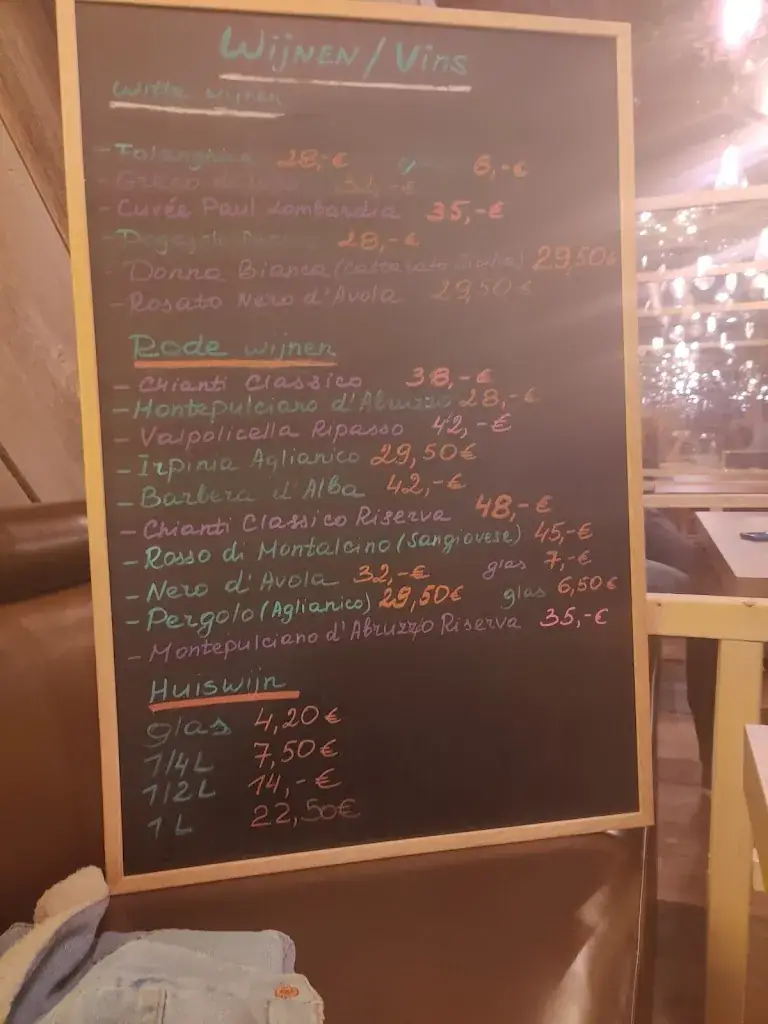 Wijnen / Vins
Witte wijnen
- Falanghina 28,-€ 6,-€
- Greco 32,-€
- Cuvée Paul Lombardia 35,-€
- 28,-€
- Donna Bianca ( 29,50€
- Rosato Nero d'Avola 29,50€
Rode wijnen
- Chianti Classico 38,-€
- Montepulciano d'Abruzzo 28,-€
- Valpolicella Ripasso 42,-€
- Irpinia Aglianico 29,50€
- Barbera d'Alba 42,-€
- Chianti Classico Riserva 48,-€
- Rosso di Montalcino (Sangiovese) 45,-€
- Nero d'Avola 32,-€ glas 7,-€
- Pergolo (Aglianico) 29,50€ glas 6,50€
- Montepulciano d'Abruzzo Riserva 35,-€
Huiswijn
glas 4,20€
1/4L 7,50€
1/2L 14,-€
1L 22,50€